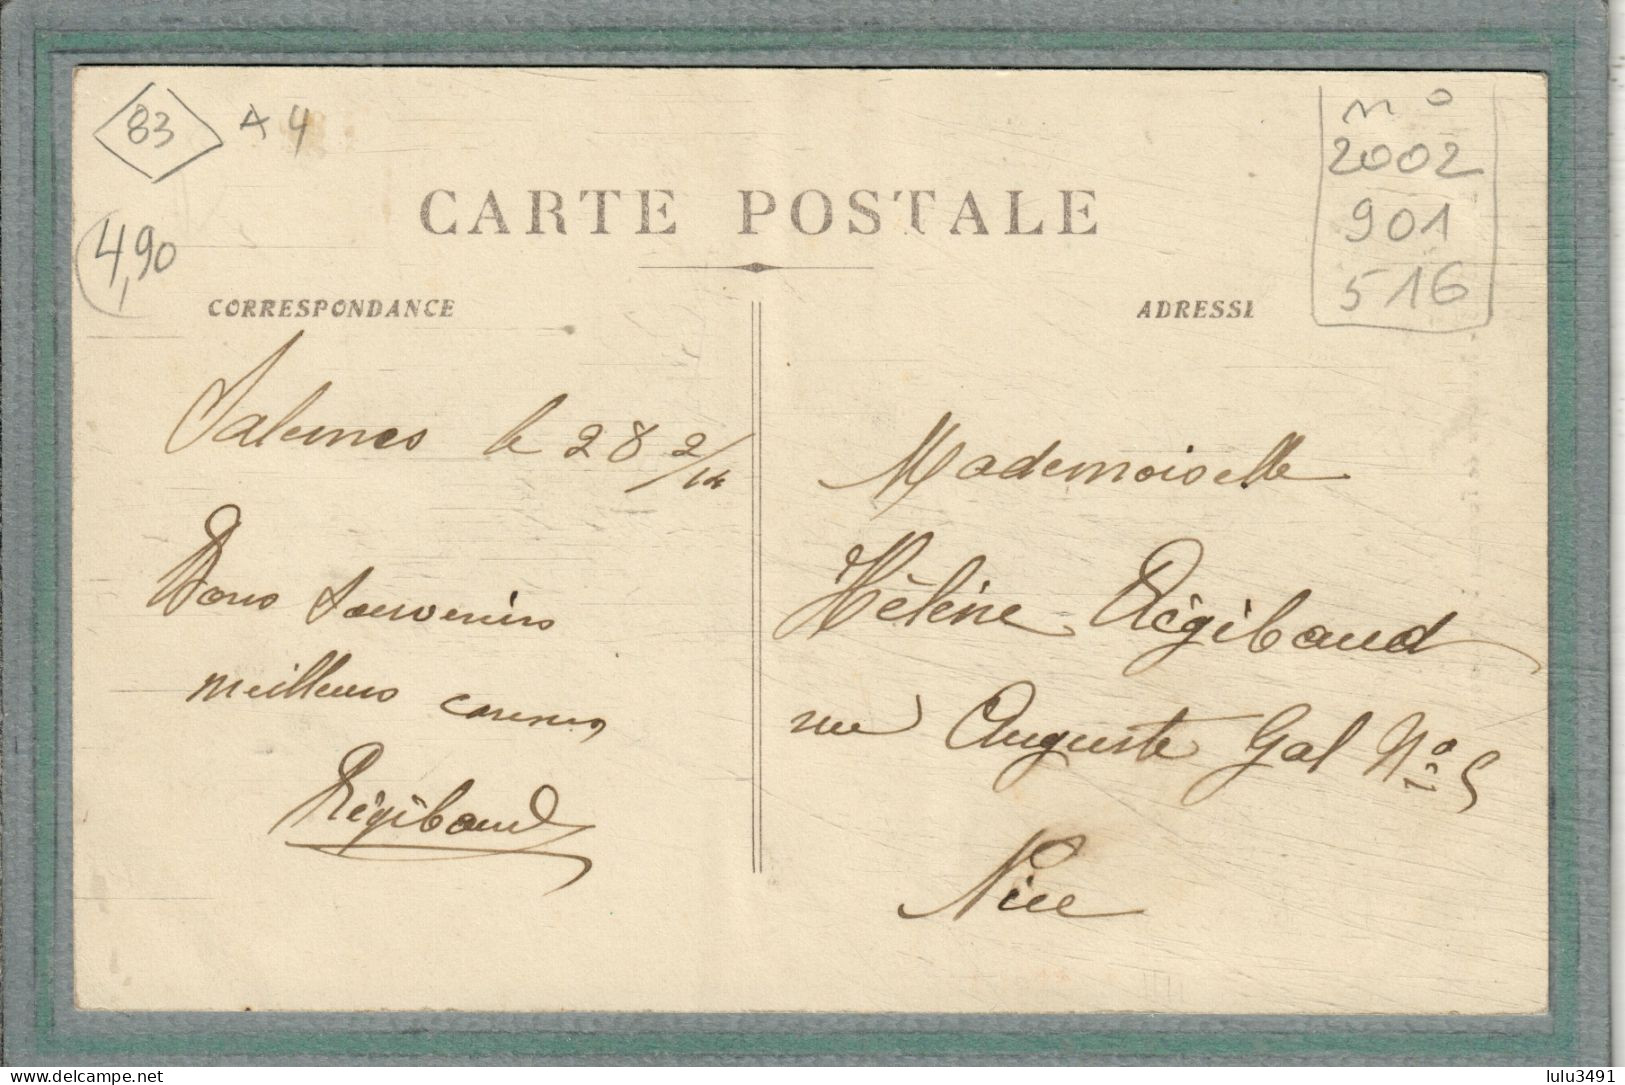 83
A 4
4,90
n°
2002
901
516
CARTE POSTALE
CORRESPONDANCE
ADRESSE
Salernes le 28 2/14
Bons souvenirs
meilleurs
Régibaud
Mademoiselle
Hélène Régibaud
rue Auguste Gal N° 5
Nice
delcampe.net
lulu3491